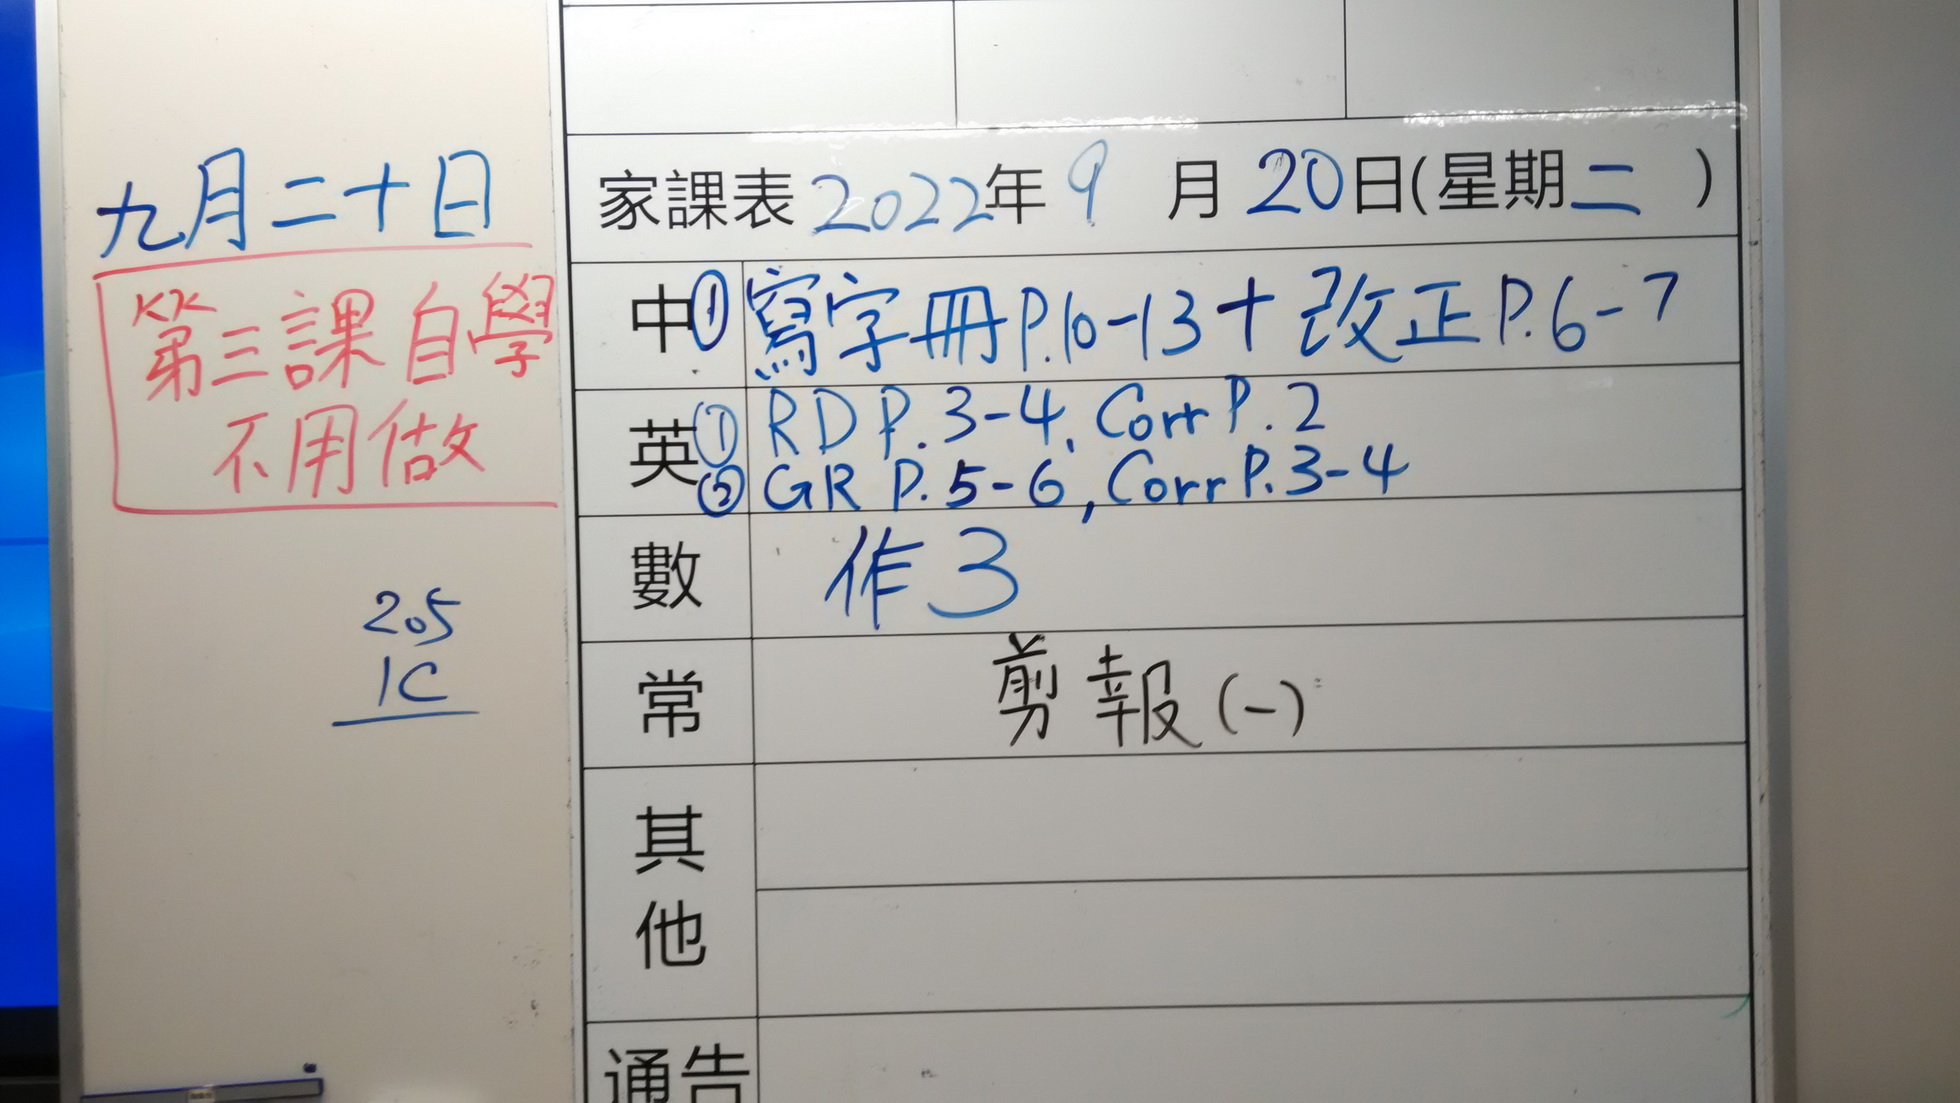 九月二十日
第三課自學
不用做
205
1C
家課表2022年9月20日(星期二)
中①寫字冊P.10-13+改正P.6-7
英①RD P.3-4, Corr P.2
②GR P.5-6, Corr P.3-4
數 作3
常 剪報(一)
其他
通告